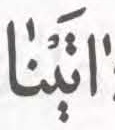 اٰتَيْنٰا